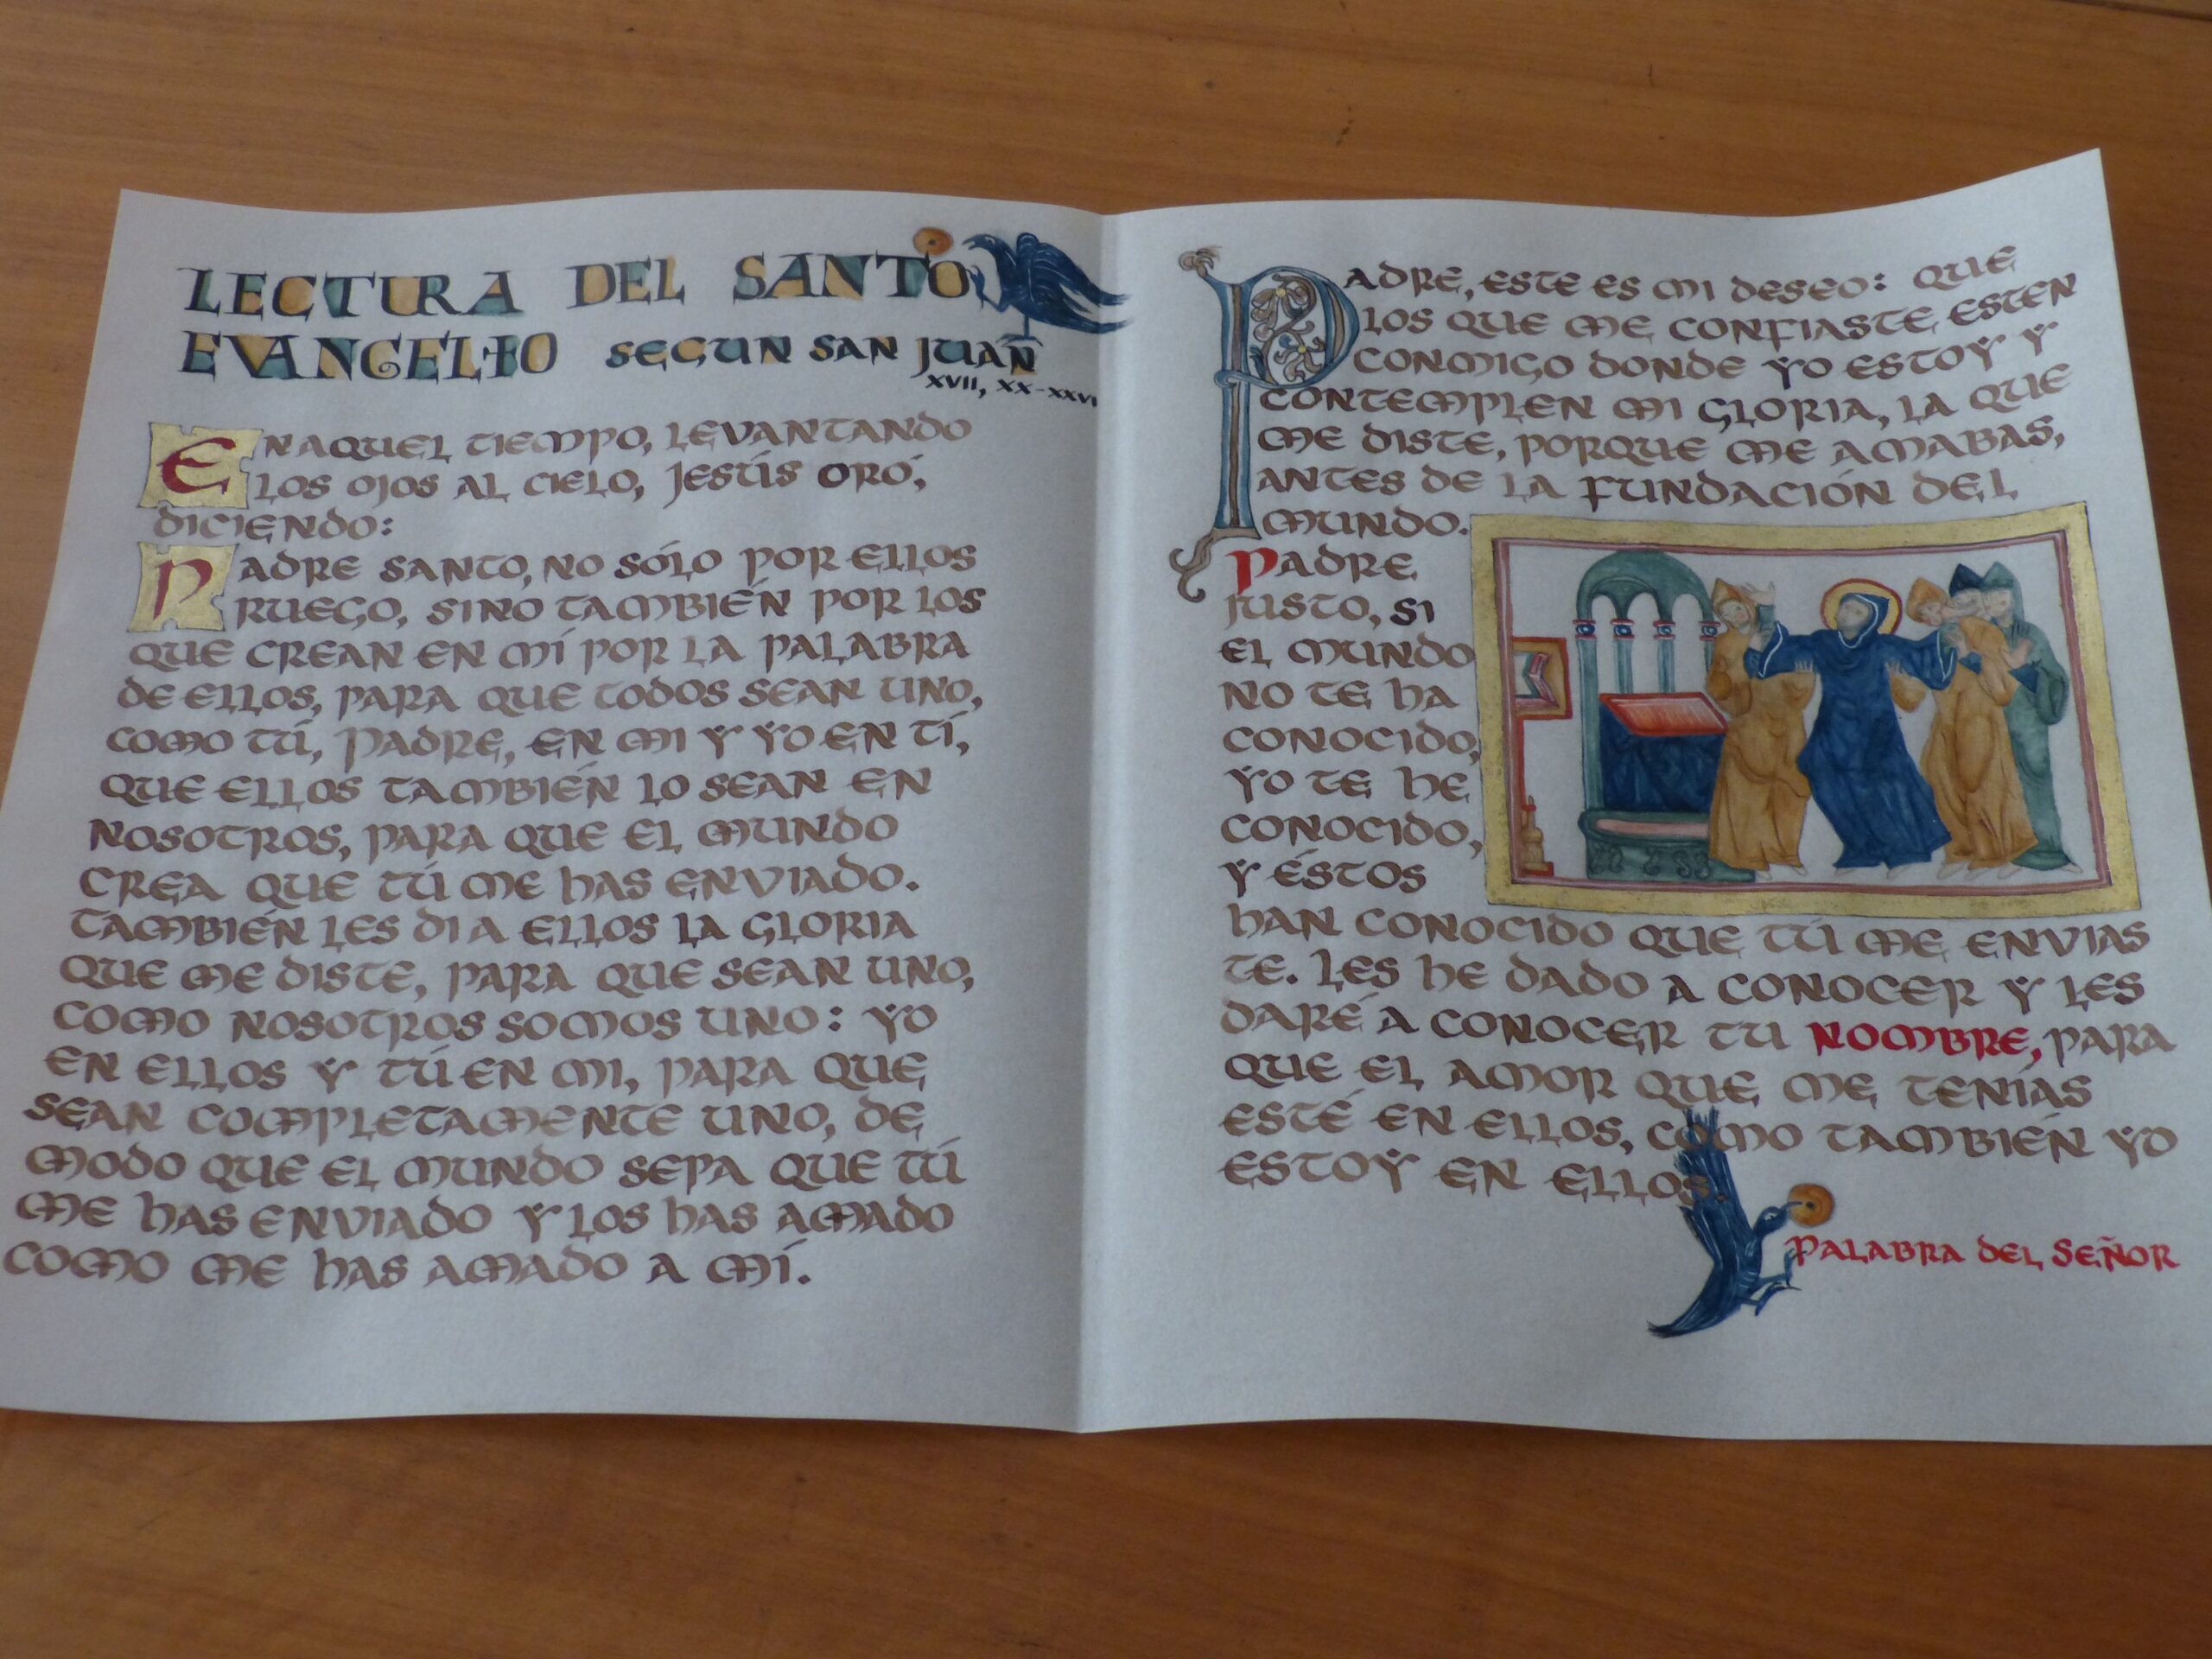 LECTURA DEL SANTO
EVANGELIO SEGUN SAN JUAN
XVII, XX-XXVI
EN AQUEL TIEMPO, LEVANTANDO
LOS OJOS AL CIELO, JESÚS ORÓ,
DICIENDO:
PADRE SANTO, NO SÓLO POR ELLOS
RUEGO, SINO TAMBIÉN POR LOS
QUE CREAN EN MÍ POR LA PALABRA
DE ELLOS, PARA QUE TODOS SEAN UNO,
COMO TÚ, PADRE, EN MI Y YO EN TÍ,
QUE ELLOS TAMBIÉN LO SEAN EN
NOSOTROS, PARA QUE EL MUNDO
CREA QUE TÚ ME HAS ENVIADO.
TAMBIÉN LES DI A ELLOS LA GLORIA
QUE ME DISTE, PARA QUE SEAN UNO,
COMO NOSOTROS SOMOS UNO: YO
EN ELLOS Y TÚ EN MI, PARA QUE
SEAN COMPLETAMENTE UNO, DE
MODO QUE EL MUNDO SEPA QUE TÚ
ME HAS ENVIADO Y LOS HAS AMADO
COMO ME HAS AMADO A MÍ.
PADRE, ESTE ES MI DESEO: QUE
LOS QUE ME CONFIASTE ESTEN
CONMIGO DONDE YO ESTOY Y
CONTEMPLEN MI GLORIA, LA QUE
ME DISTE, PORQUE ME AMABAS,
ANTES DE LA FUNDACIÓN DEL
MUNDO.
PADRE
JUSTO, SI
EL MUNDO
NO TE HA
CONOCIDO,
YO TE HE
CONOCIDO,
Y ÉSTOS
HAN CONOCIDO QUE TÚ ME ENVIAS
TE. LES HE DADO A CONOCER Y LES
DARÉ A CONOCER TU NOMBRE, PARA
QUE EL AMOR QUE ME TENÍAS
ESTÉ EN ELLOS, COMO TAMBIÉN YO
ESTOY EN ELLOS.
PALABRA DEL SEÑOR